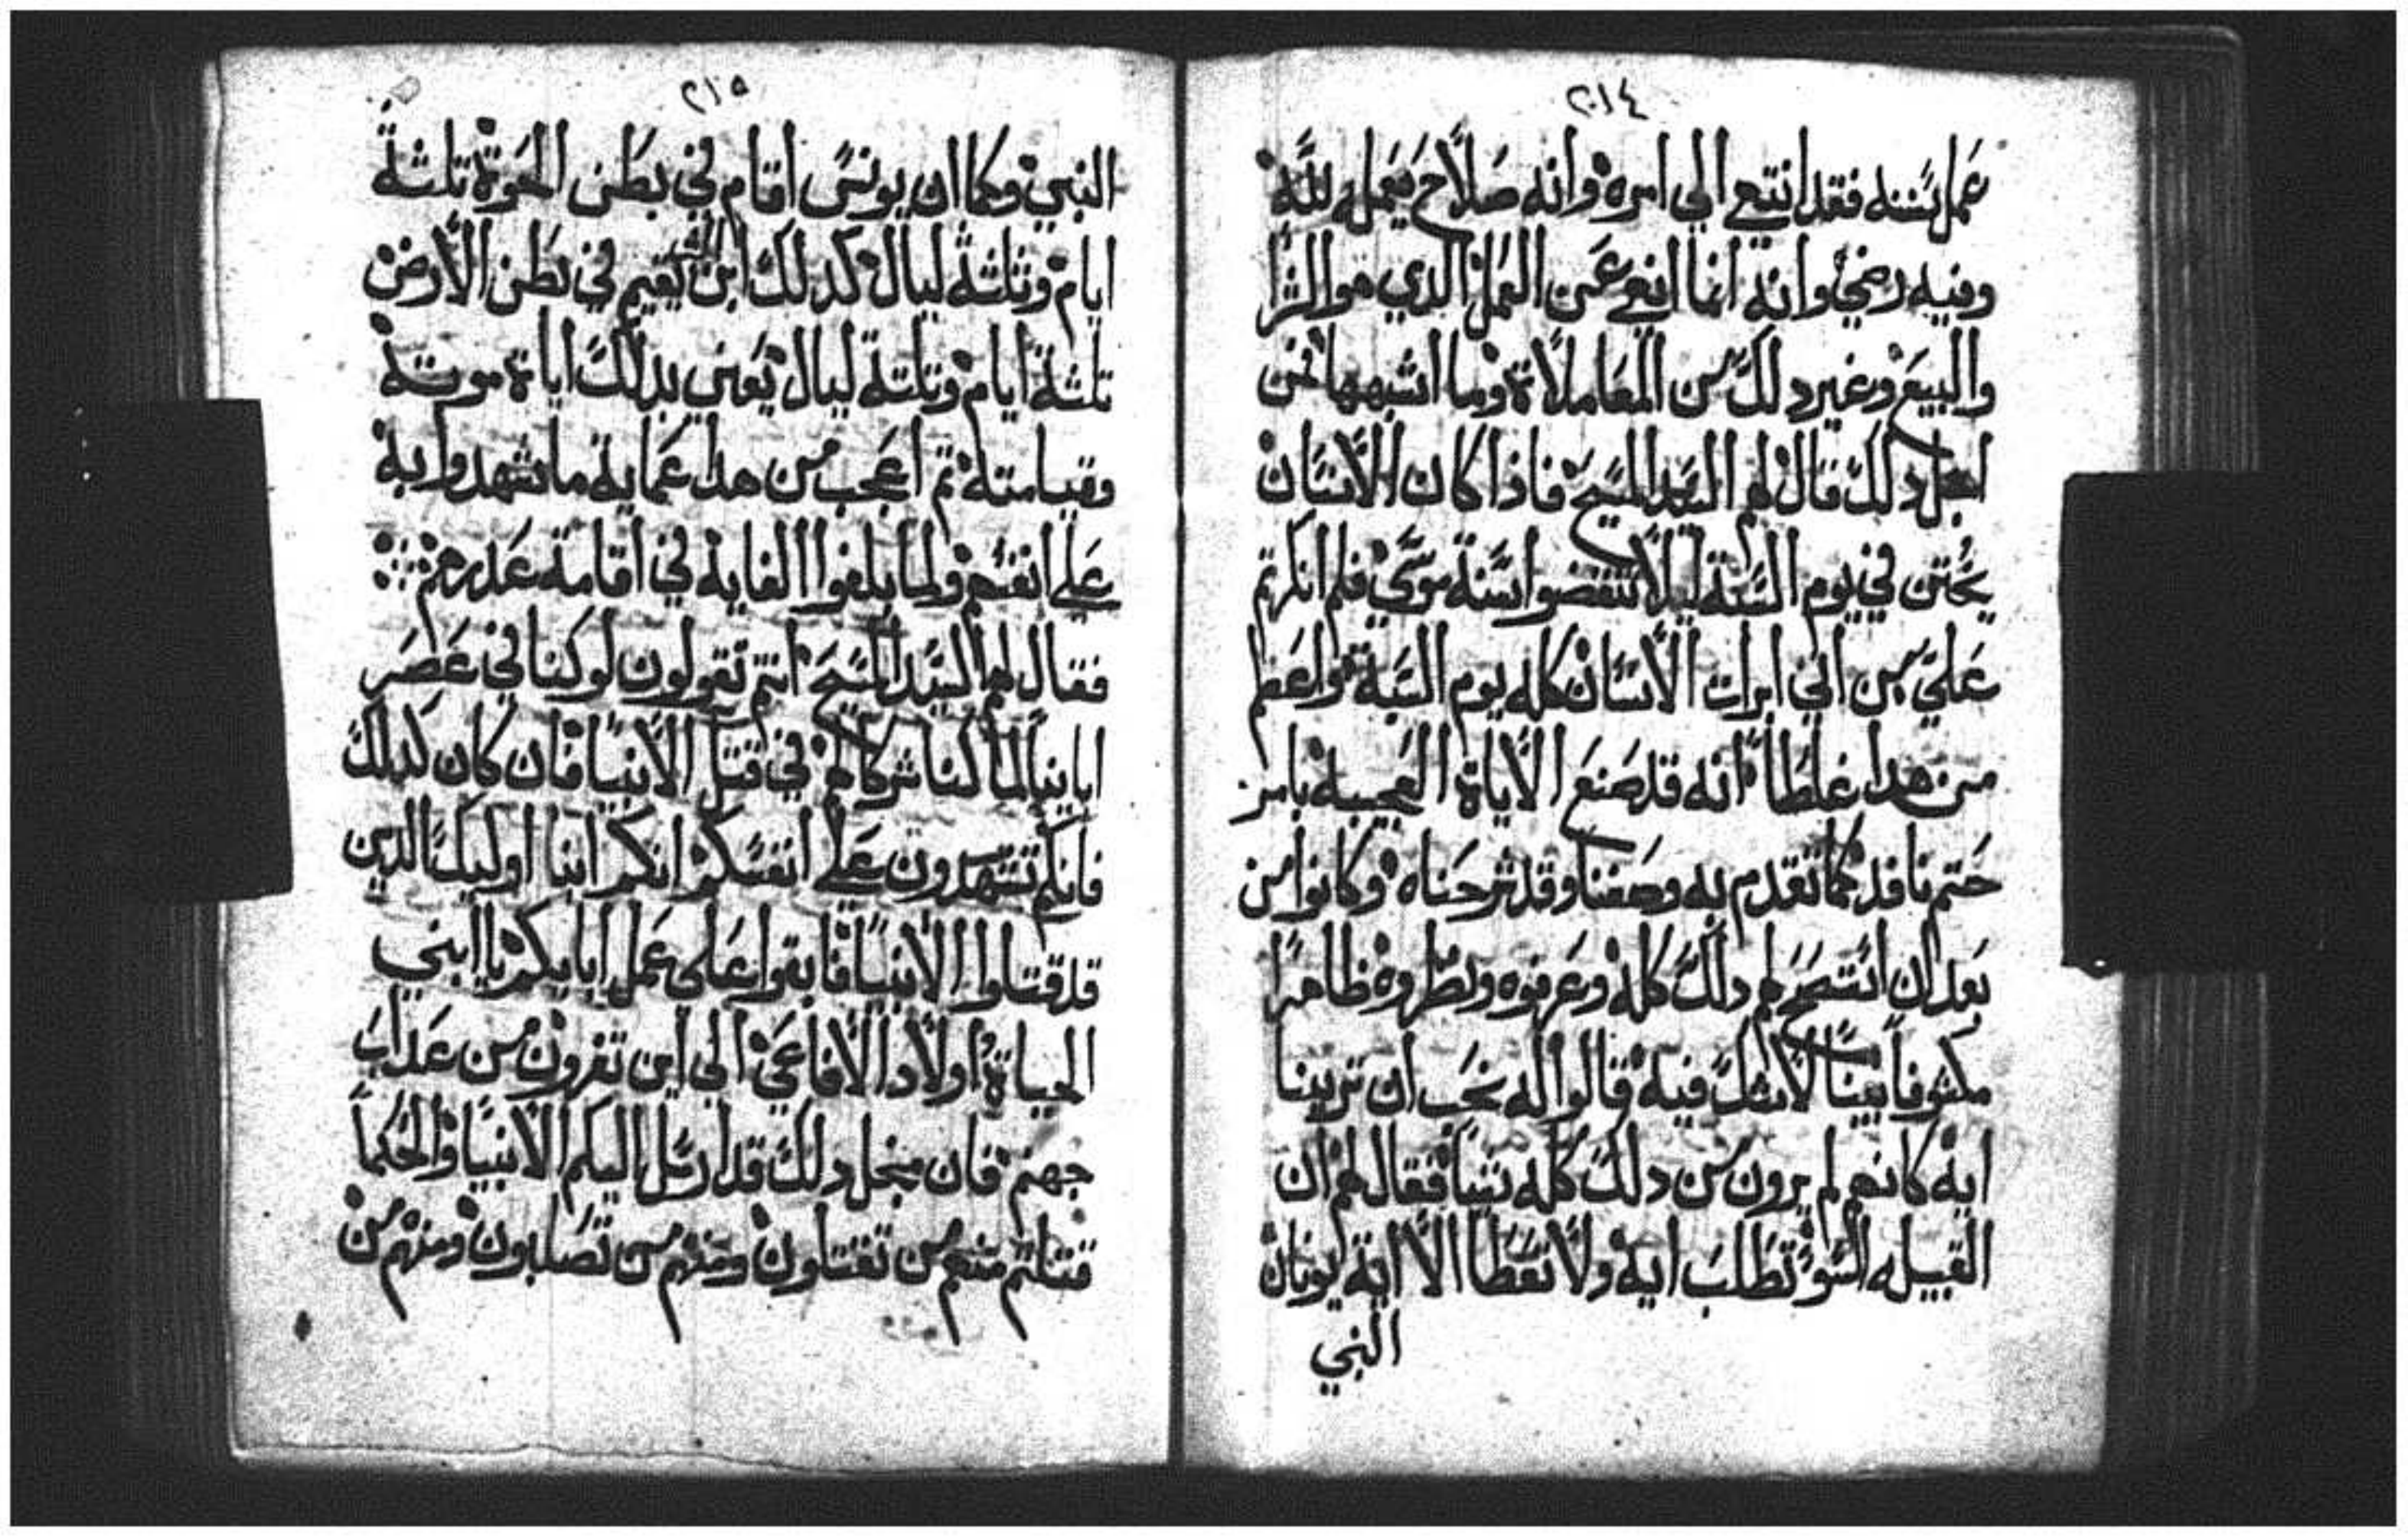 ٢١٤
عمل بسننه فقد انتهي الي امره وانه صلاح يعمله لله
وفيه رضي وانه انما انهي عن العمل الدي هو الشرا
والبيع وغير دلك من المعاملاة وما اشبهها فمن
اجل دلك قال لهم السيد المسيح فاذا كان الانسان
يختن في يوم السبة ليلا تنقضوا سنة موسي فلم انكرتم
علي من اني ابرات الانسان كله يوم السبة واعظم
من هدا غلطا انه قد صنع الاياة العجيبه بامر
حتم نافد كما تقدم به وصفنا وقد شرحناه وكانوا من
بعد ان اتضح لهم دلك كله وعرفوه ونظروه ظاهرا
مكشوفا بينا لا شك فيه قالوا له نحب ان ترينا
ايه كانهم لم يرون من دلك كله شيا فقال لهم ان
القبيله السو تطلب ايه ولا تعطا الا اية يونان
النبي
٢١٥
النبي وكما ان يونس اقام في بطن الحوة تلتة
ايام وتلتة ليال كدلك ابن يقيم في بطن الارض
تلتة ايام وتلتة ليال يعني بدلك اياة موتة
وقيامتة تم اعجب من هدا عمايه ما شهدوا به
علي انفسهم ولما بلغوا الغايه في اقامة عدرهم
فقال لهم السيد المسيح انتم تقولون لو كنا في عصر
اباينا لما كنا شركاهم في قتل الانبيا فان كان كدلك
فانكم تشهدون علي انفسكم انكم ابنا اوليك الدين
قد قتلوا الانبيا فابقوا علي عمل ابايكم يا ابني
الحياة اولاد الافاعي الي اين تفرون من عداب
جهنم فان منجل دلك قد ارسل اليكم الانبيا والحكما
قتلتم منهم من تقتلون ومنهم من تصلبون ومنهم من